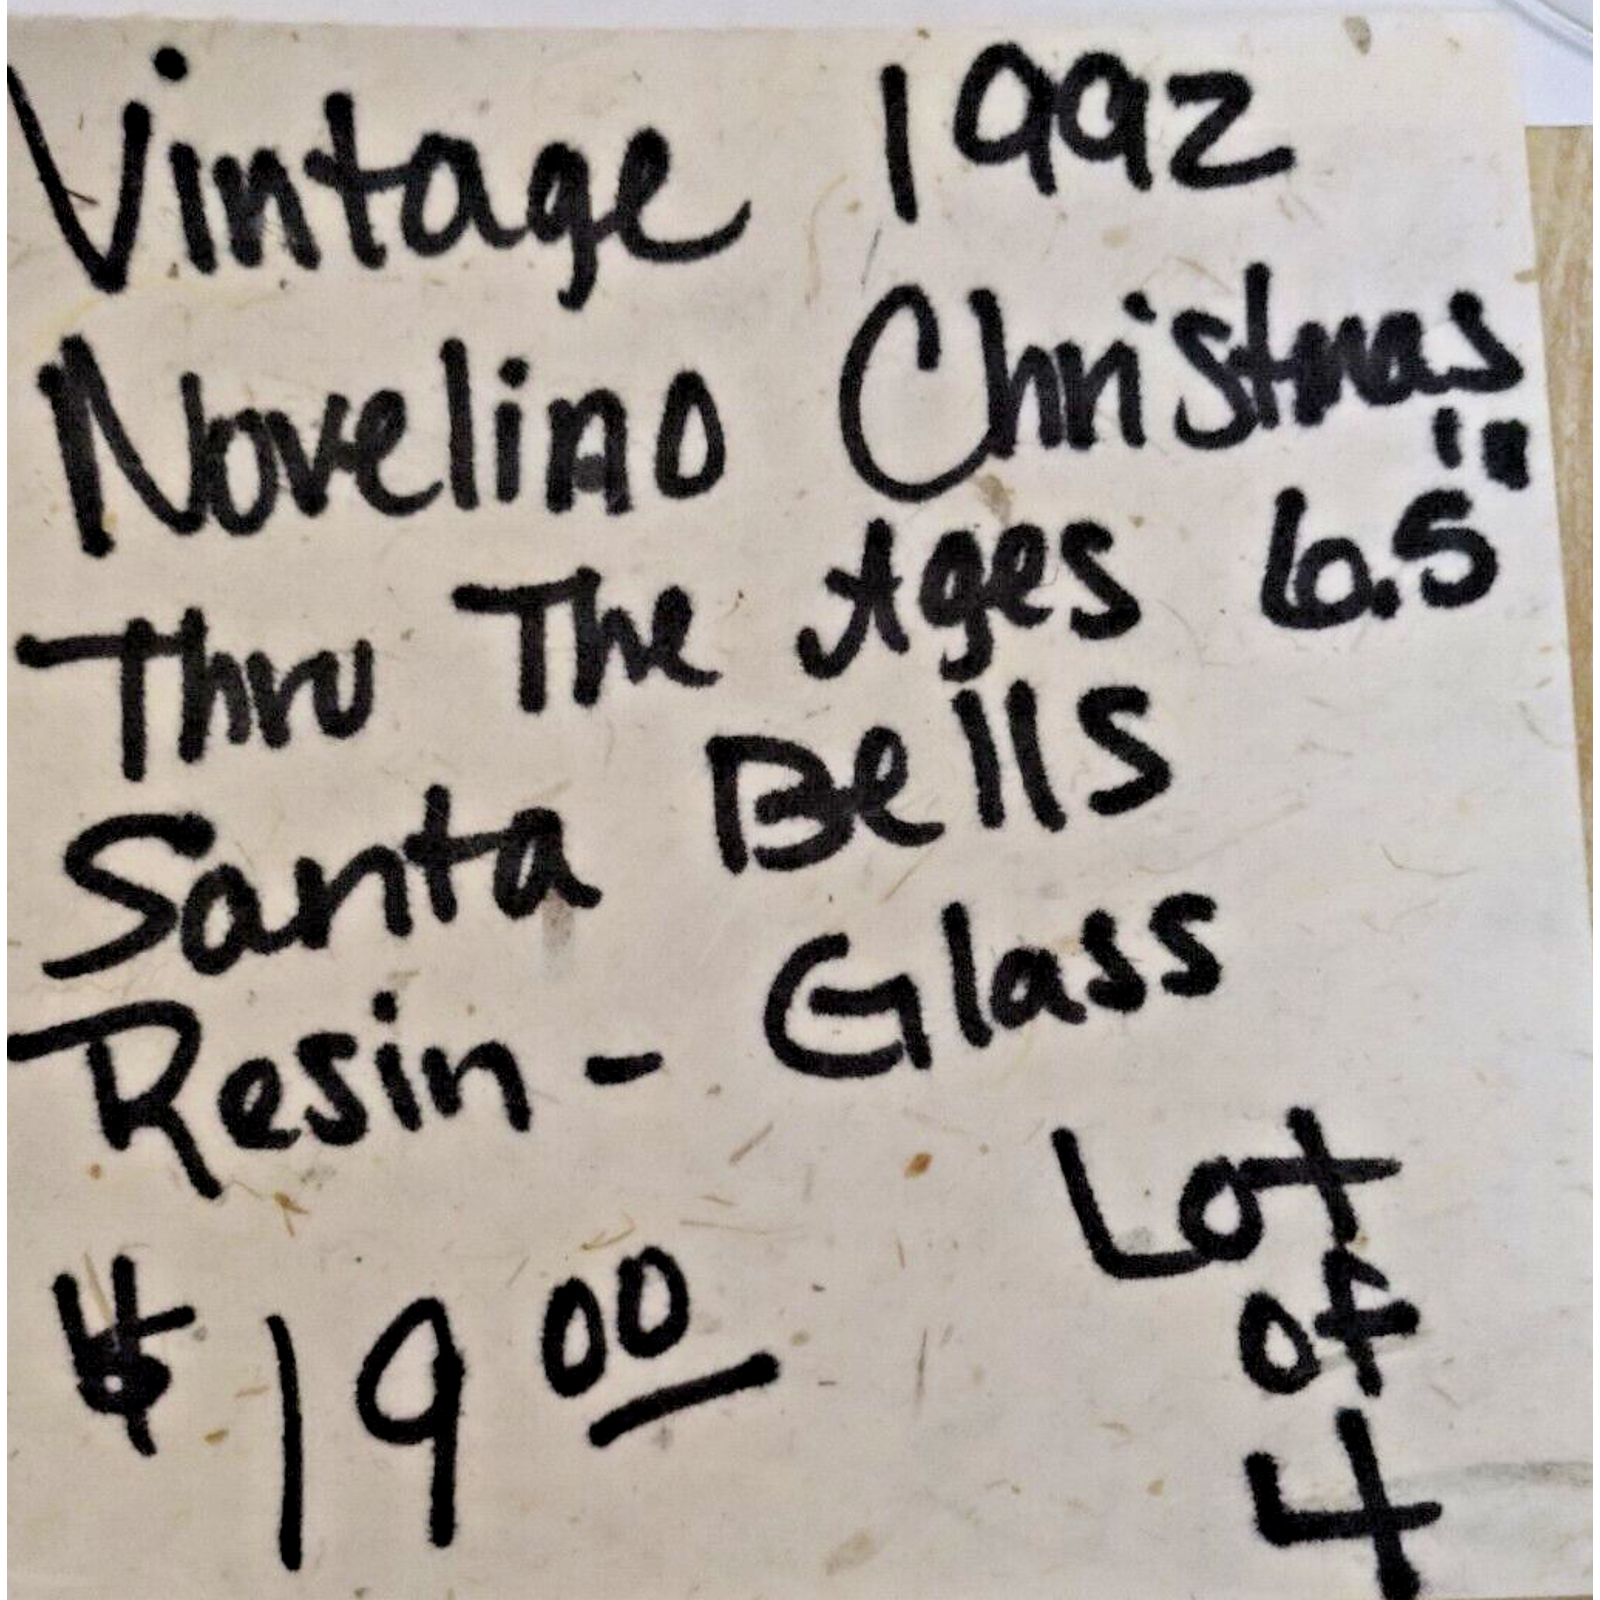 Vintage 1992
Novelino Christmas
Thru The Ages 6.5"
Santa Bells
Resin - Glass
Lot
of
4
$19.00